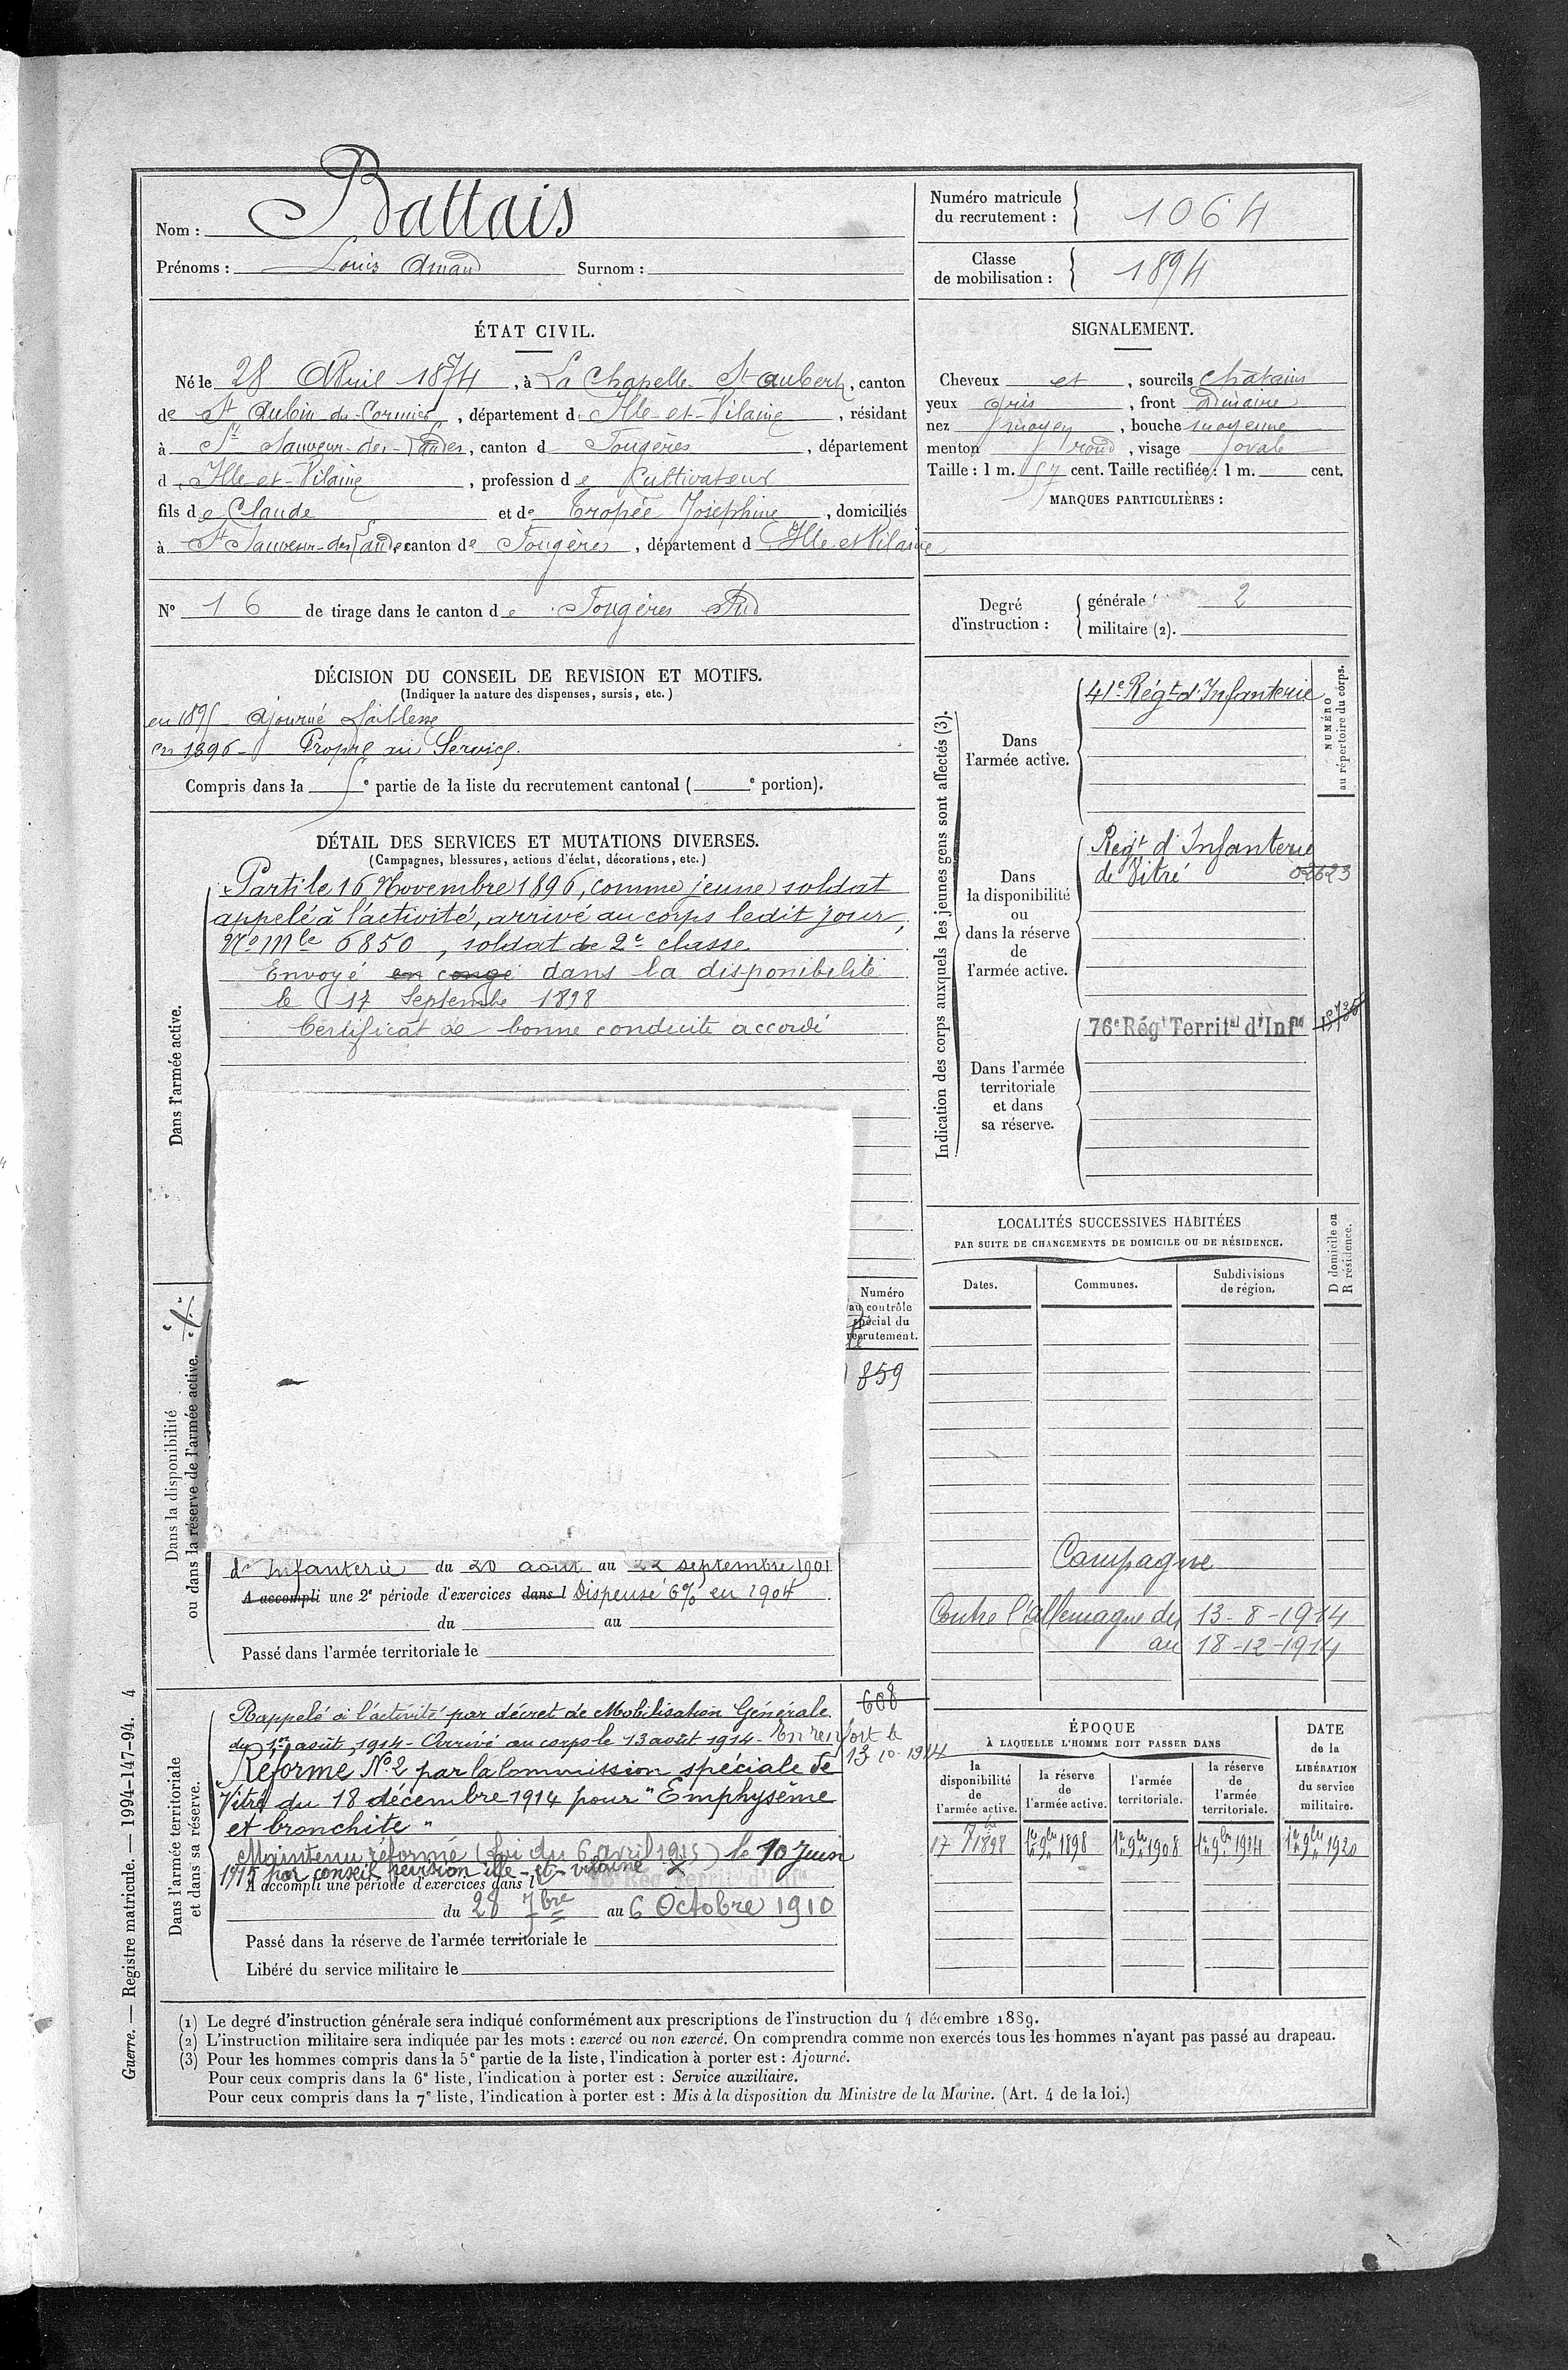 Nom : Battais
Prénoms : Louis Amand Surnom :
Numéro matricule
du recrutement : 1064
Classe
de mobilisation : 1894
ÉTAT CIVIL.
Né le 28 Avril 1874, à La Chapelle St Aubert, canton
de St Aubin du Cormier, département d Ille-et-Vilaine, résidant
à St Sauveur-des-Landes, canton d Fougères, département
d Ille-et-Vilaine, profession de Cultivateur
fils de Claude et de Tropée Joséphine, domiciliés
à St Sauveur-des Landes canton de Fougères, département d Ille et Vilaine
N° 16 de tirage dans le canton de Fougères Sud
SIGNALEMENT.
Cheveux et, sourcils chatains
yeux gris, front ordinaire
nez moyen, bouche moyenne
menton rond, visage ovale
Taille : 1 m. 57 cent. Taille rectifiée : 1 m. cent.
MARQUES PARTICULIÈRES :
Degré
d'instruction :
générale 2
militaire (2).
DÉCISION DU CONSEIL DE REVISION ET MOTIFS.
(Indiquer la nature des dispenses, sursis, etc.)
en 1895 ajourné faiblesse
en 1896 - Propre au Service.
Compris dans la e partie de la liste du recrutement cantonal ( e portion).
DÉTAIL DES SERVICES ET MUTATIONS DIVERSES.
(Campagnes, blessures, actions d'éclat, décorations, etc.)
Dans l'armée active.
Parti le 16 Novembre 1896, comme jeune soldat
appelé à l'activité, arrivé au corps ledit jour,
N° Mle 6850, soldat de 2e classe
Envoyé en congé dans la disponibilité
le 17 Septembre 1898
Certificat de bonne conduite accordé
Indication des corps auxquels les jeunes gens sont affectés (3).
NUMÉRO
au répertoire du corps.
Dans
l'armée active.
41e Régt d'Infanterie
Dans
la disponibilité
ou
dans la réserve
de
l'armée active.
Régt d'Infanterie
de Vitré 02623
Dans l'armée
territoriale
et dans
sa réserve.
76e Régt Territal d'Infie
Dans la disponibilité
ou dans la réserve de l'armée active.
Numéro
au contrôle
spécial du
recrutement.
859
d'Infanterie du 20 aout au 22 septembre 1901
A accompli une 2e période d'exercices dans l Dispensé 6% en 1904
du au
Passé dans l'armée territoriale le
LOCALITÉS SUCCESSIVES HABITÉES
PAR SUITE DE CHANGEMENTS DE DOMICILE OU DE RÉSIDENCE.
Dates. Communes. Subdivisions
de région.
D domicile ou
R résidence.
Campagne
Contre l'Allemagne du 13-8-1914
au 18-12-1914
Dans l'armée territoriale
et dans sa réserve.
608
Rappelé à l'activité par décret de Mobilisation Générale
du 1er août 1914 - Arrivé au corps le 13 août 1914 - En renfort le
13-10-1914
Réformé N°2 par la Commission spéciale de
Vitré du 18 décembre 1914 pour "Emphysème
et bronchite"
Maintenu réformé (Loi du 6 avril 1915) le 10 Juin
1915 par conseil revision ille-et-vilaine
A accompli une période d'exercices dans l 76e Régt Territal d'Infie
du 28 7bre au 6 Octobre 1910
Passé dans la réserve de l'armée territoriale le
Libéré du service militaire le
ÉPOQUE
À LAQUELLE L'HOMME DOIT PASSER DANS
la
disponibilité
de
l'armée active.
la réserve
de
l'armée active.
l'armée
territoriale.
la réserve
de
l'armée
territoriale.
DATE
de la
LIBÉRATION
du service
militaire.
17 7bre 1898 1er 9bre 1898 1er 9bre 1908 1er 9bre 1914 1er 9bre 1920
(1) Le degré d'instruction générale sera indiqué conformément aux prescriptions de l'instruction du 4 décembre 1889.
(2) L'instruction militaire sera indiquée par les mots : exercé ou non exercé. On comprendra comme non exercés tous les hommes n'ayant pas passé au drapeau.
(3) Pour les hommes compris dans la 5e partie de la liste, l'indication à porter est : Ajourné.
Pour ceux compris dans la 6e liste, l'indication à porter est : Service auxiliaire.
Pour ceux compris dans la 7e liste, l'indication à porter est : Mis à la disposition du Ministre de la Marine. (Art. 4 de la loi.)
Guerre. — Registre matricule. — 1994-147-94. 4